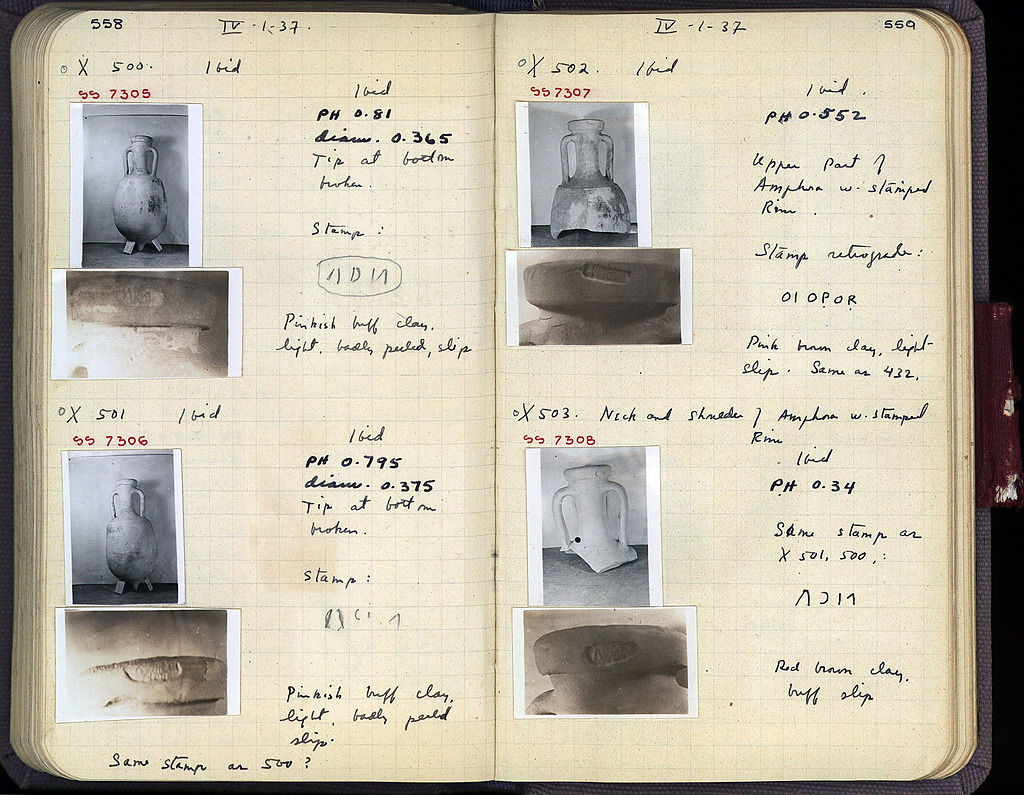 558
IV -1-37.
X 500. Ibid
SS 7305
Ibid
PH 0.81
diam. 0.365
Tip at bottom
broken.
Stamp:
Pinkish buff clay,
light, badly peeled, slip
X 501 Ibid
SS 7306
Ibid
PH 0.795
diam. 0.375
Tip at bottom
broken.
Stamp:
Pinkish buff clay,
light, badly peeled
slip.
Same stamp as 500?
IV -1-37
559
X 502. Ibid
SS 7307
Ibid.
PH 0.552
Upper part of
Amphora w. stamped
Rim.
Stamp retrograde:
OIOPOR
Pink brown clay, light
slip. Same as 432.
X 503. Neck and shoulder of Amphora w. stamped
Rim
SS 7308
Ibid
PH 0.34
Same stamp as
X 501, 500,:
Red brown clay,
buff slip